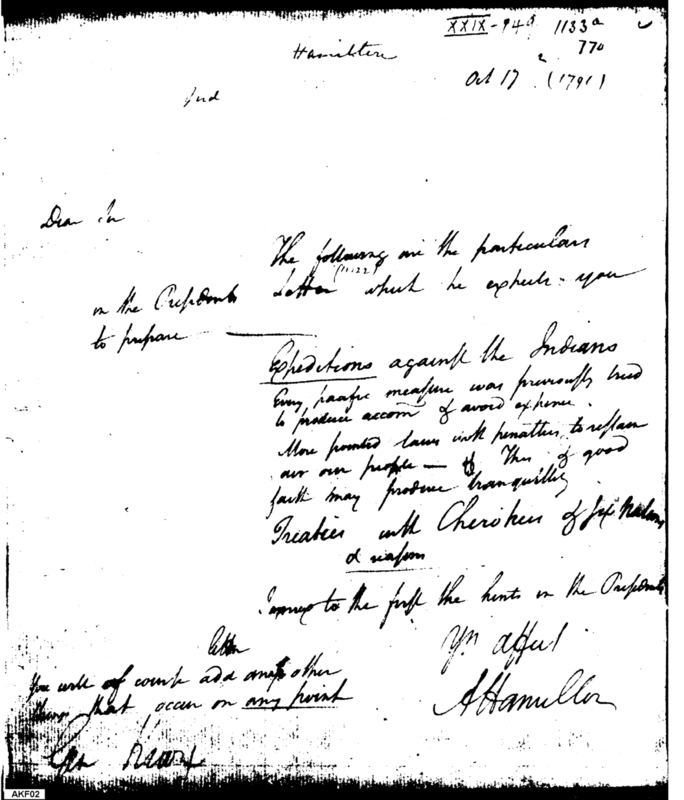 XXIX-94a 1133a
770
Hamilton
Oct 17 (1791)
Dear Sir
The following are the particulars
(1122)
in the Presidents Letter which he expects you
to prepare
Expeditions against the Indians
Every pacific measure was previously tried
to produce accom & avoid expence.
More pointed laws with penalties to restrain
our people — This & good
faith may produce tranquillity
Treaties with Cherokees & Six Nations
& reasons
I annex to the first the hints in the Presidents
letter
You will of course add any other
things that occur on any point
Yrs affecly
AHamilton
Gen Knox
AKF02